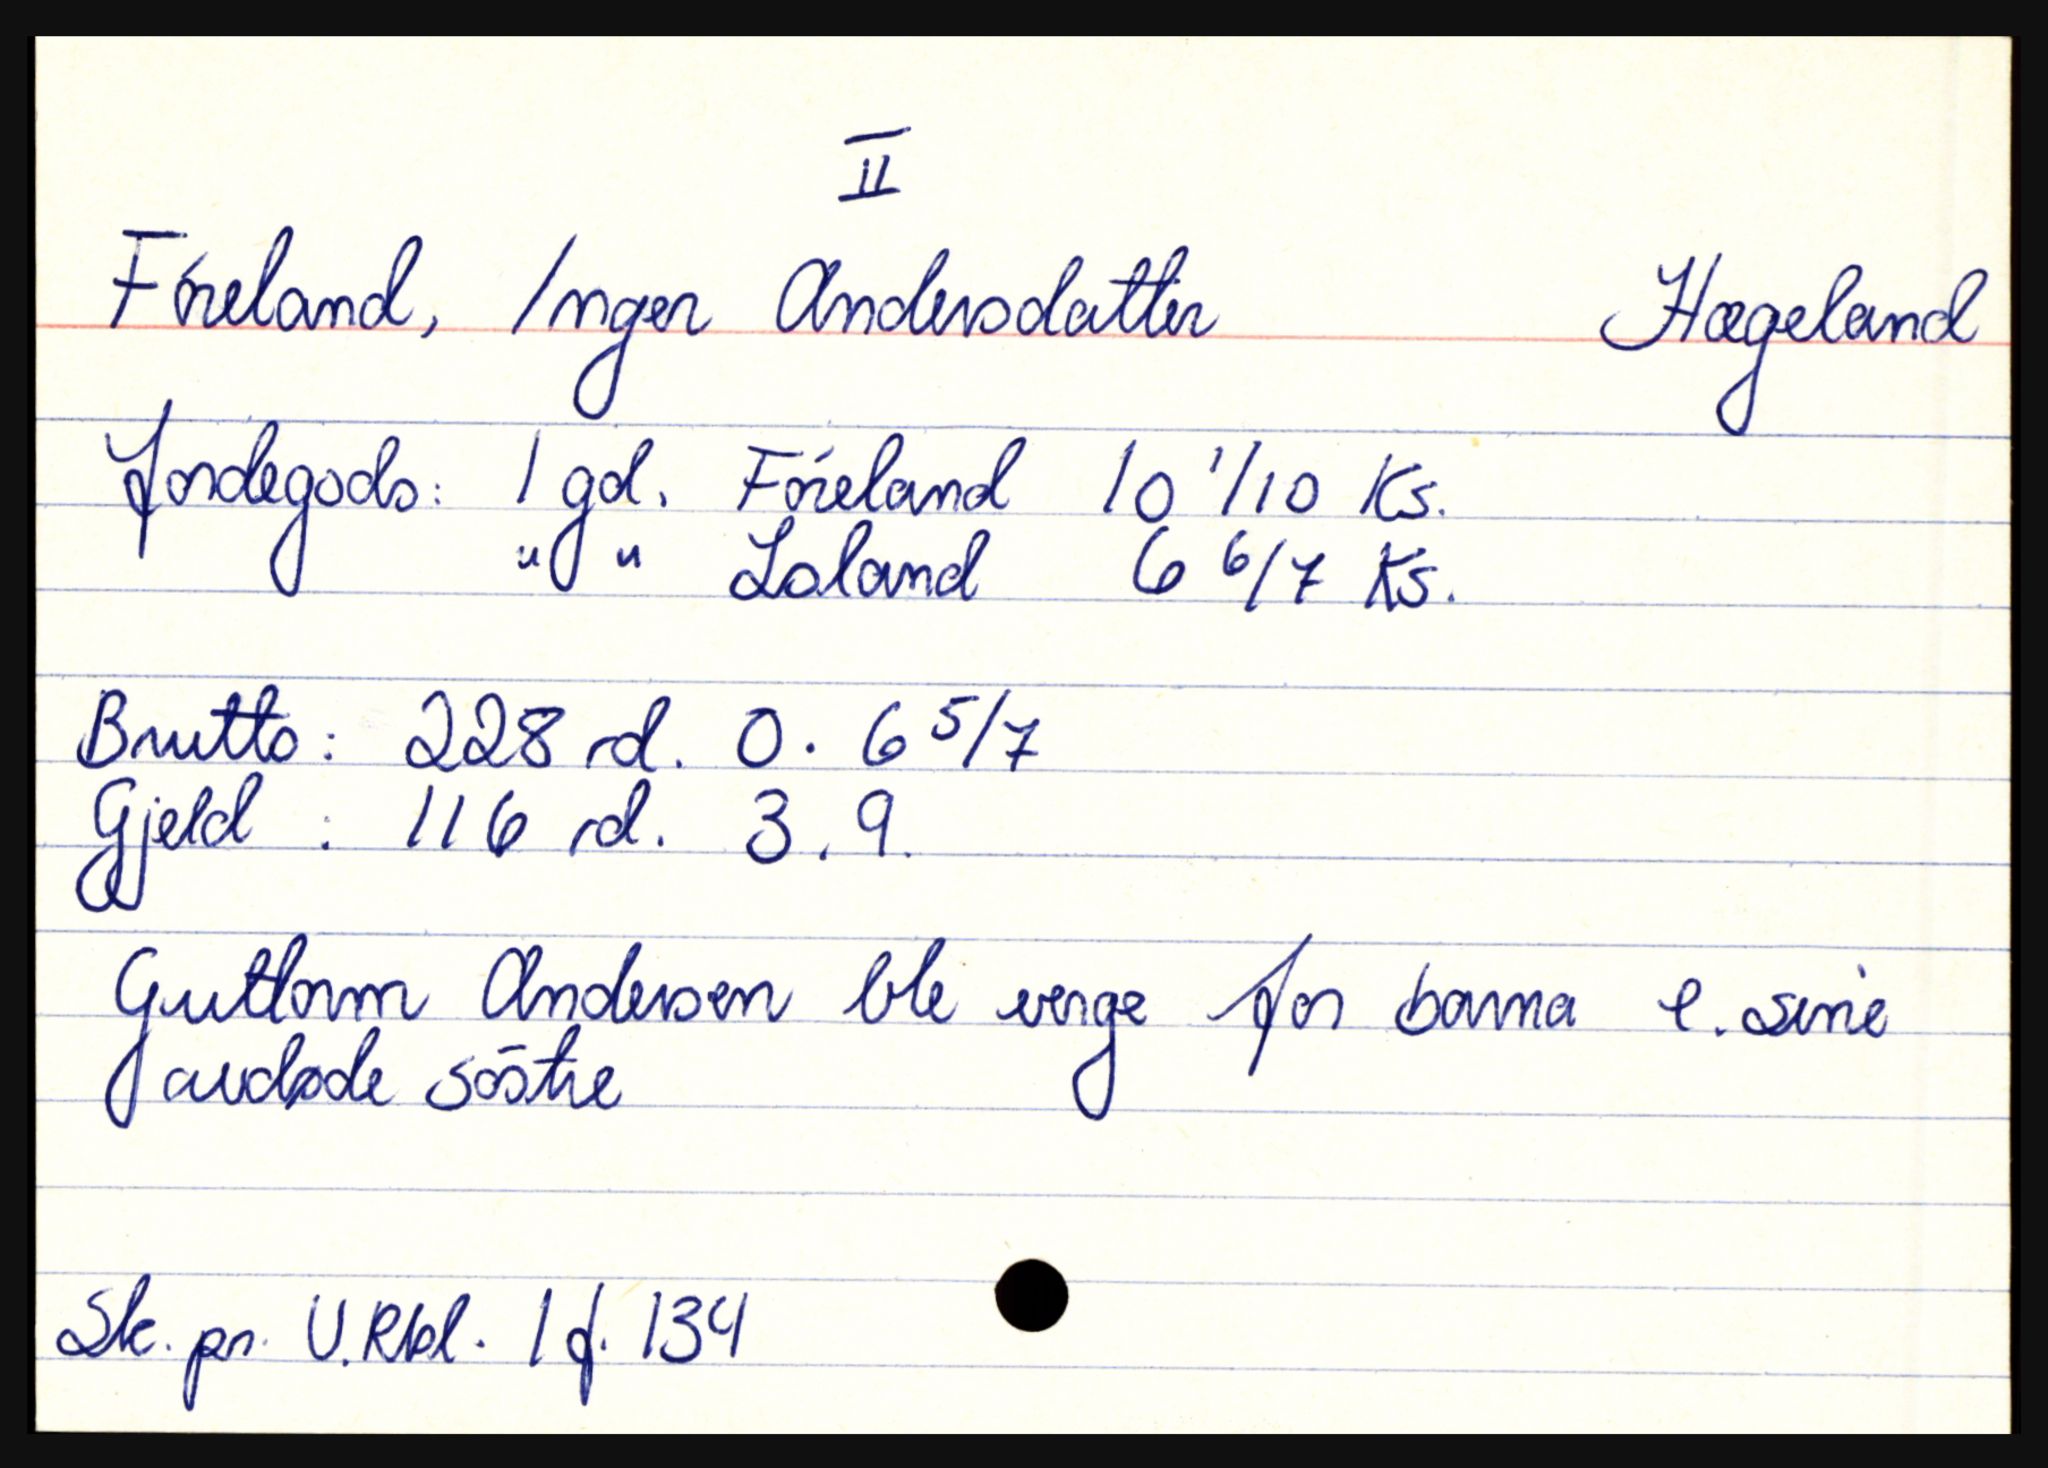 II
Fóreland, Inger Andersdatter Hægeland
Jordegods: 1 gd. Fóreland 10 1/10 Ks.
" " Loland 6 6/7 Ks.
Brutto: 228 rd. 0. 6 5/7
Gjeld : 116 rd. 3. 9.
Guttorm Andersen ble verge for barna e. sine
avdøde søstre
Sk. pr. U.Rbl. 1 f. 134